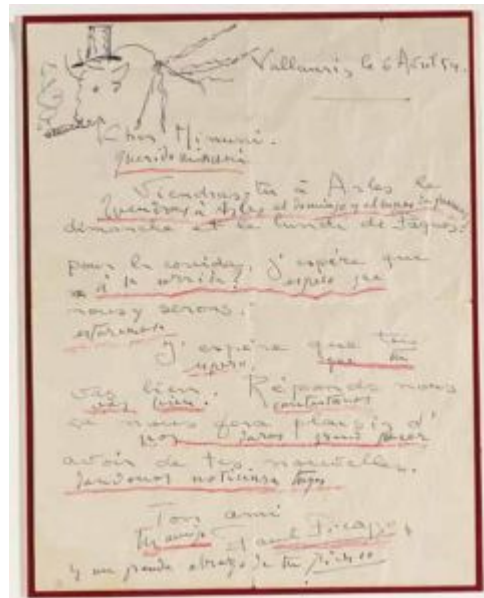 Vallauris, le 6 Août 54.
Cher Mimuni.
querido
Viendras tu à Arles le
à Arles el domingo y el lunes de
dimanche et le lundi de Pâques.
pour la corrida, j'espère que
a la corrida? espero que
nous y serons.
estaremos
J'espère que tu
espero que tu
vas bien. Réponds nous
vas bien. contestanos
ça nous fera plaisir d'
nos gran placer
avoir de tes nouvelles.
dandonos noticias tuyas
Ton ami
tu amigo Paul Picasso
y un grande abrazo de tu Picasso